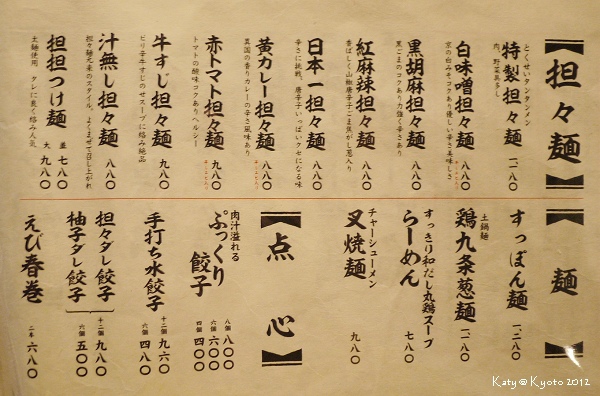 担々麺
とくせいタンタンメン
特製担々麺
肉、野菜具多し
一一八〇
白味噌担々麺
京の白みそコクあり優しい辛さ美味しさ
八八〇
黒胡麻担々麺
黒ごまのコクあり力強く辛さあり
八八〇
紅麻辣担々麺
香ばしく山椒唐辛子ごま焦がし葱入り
八八〇
日本一担々麺
辛さに挑戦、唐辛子いっぱいクセになる味
八八〇
黄カレー担々麺
異国の香りカレーの辛さ風味あり
八八〇
赤トマト担々麺
トマトの酸味コクありヘルシー
九八〇
牛すじ担々麺
ピリ辛牛すじのせスープに絡み絶品
九八〇
汁無し担々麺
担々麺元来のスタイル。よくまぜて召し上がれ
八八〇
担担つけ麺
太麺使用 タレに良く絡み人気
並 七八〇
大 九八〇
麺
すっぽん麺
一、二八〇
土鍋麺
鶏九条葱麺
一、一八〇
すっきり和だし丸鶏スープ
らーめん
七八〇
チャーシューメン
叉焼麺
九八〇
点心
肉汁溢れる
ぷっくり餃子
八個 八〇〇
六個 六〇〇
四個 四〇〇
手打ち水餃子
十二個 九六〇
六個 四八〇
担々ダレ餃子
柚子ダレ餃子
十二個 九八〇
六個 五〇〇
えび春巻
二本 六八〇
Katy @ Kyoto 2012